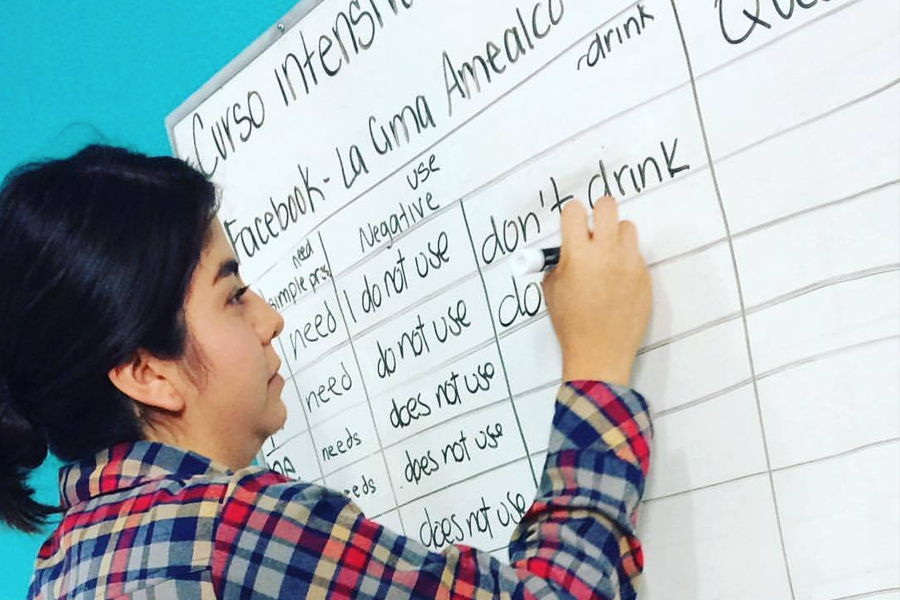 Curso intensi
Facebook - La Cima Amealco
need
simple pres
use
Negative
drink
I need
I do not use
don't drink
need
do not use
do
needs
does not use
does not use
does not use